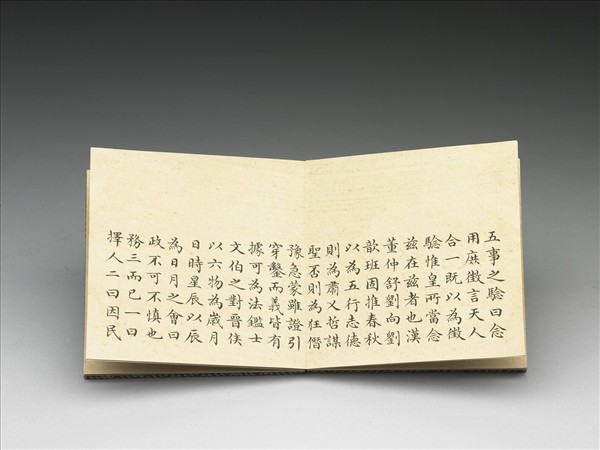 五事之驗曰念
用庶徵言天人
合一既以為徵
驗惟皇所當念
茲在茲者也漢
董仲舒劉向劉
歆班固推春秋
以為五行志德
則為肅乂哲謀
聖否則為狂僭
豫急蒙雖證引
穿鑿而義皆有
據可為法鑑士
文伯之對晉侯
以六物為歲月
日時星辰以辰
為日月之會曰
政不可不慎也
務三而已一曰
擇人二曰因民